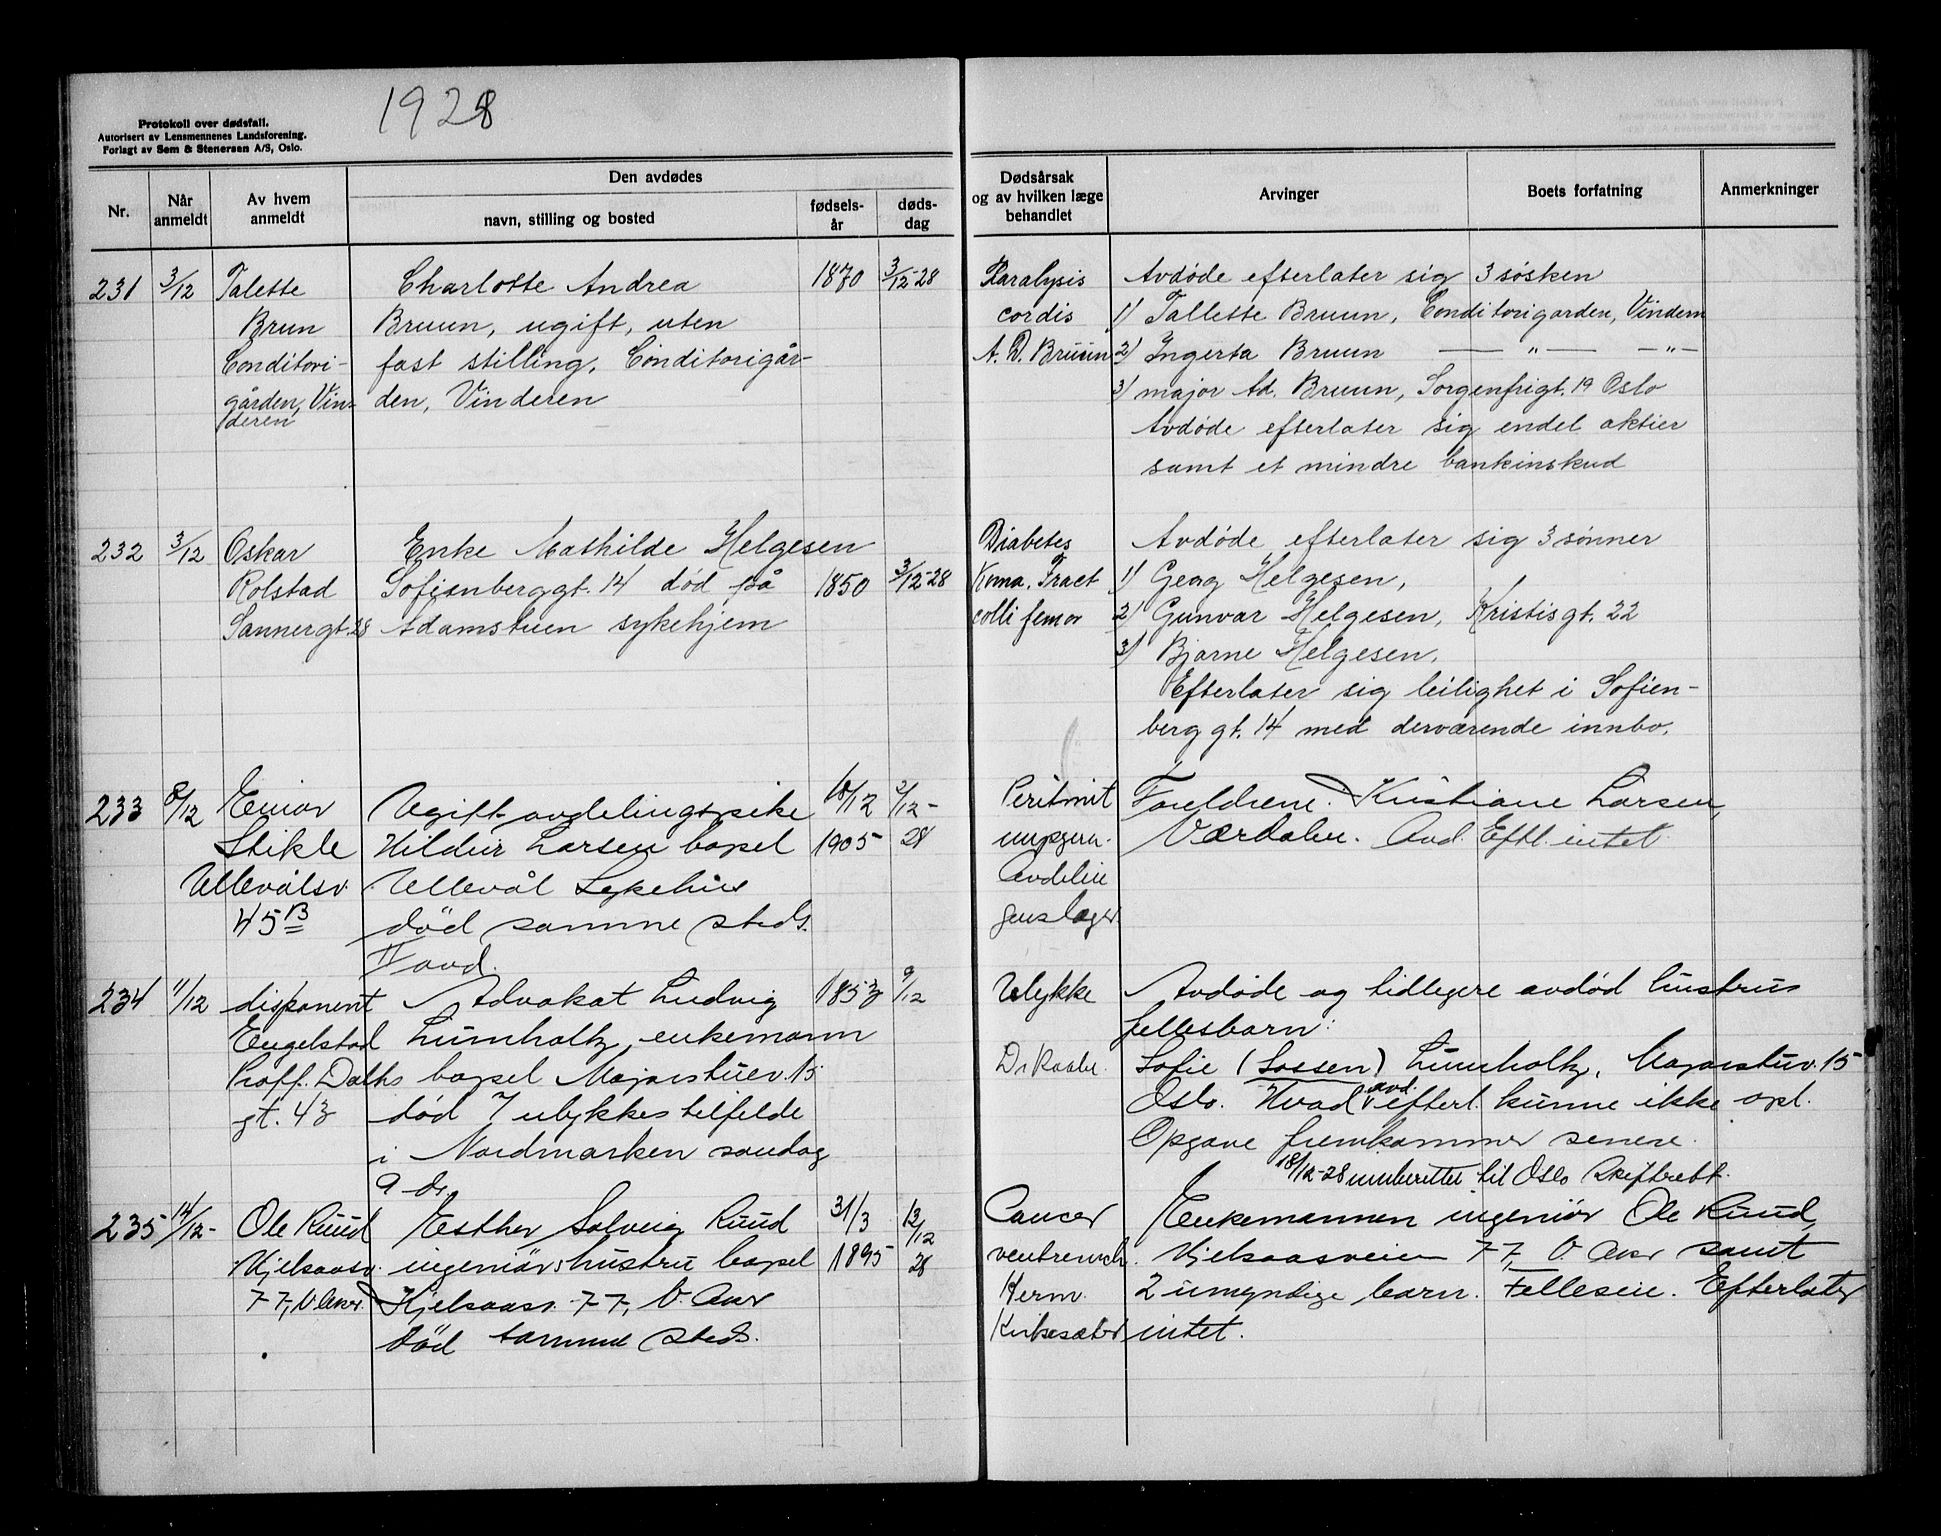 1928
Protokoll over dødsfall.
Autorisert av Lensmennenes Landsforening.
Forlagt av Sem & Stenersen A/S, Oslo.
Nr.
Når anmeldt
Av hvem anmeldt
Den avdødes
navn, stilling og bosted
fødsels-år
døds-dag
Dødsårsak
og av hvilken læge
behandlet
Arvinger
Boets forfatning
Anmerkninger
231 3/12 Talette Charlotte Andrea 1870 3/12-28
Brun Bruun, ugift, uten
Conditori- fast stilling, Conditorigår-
gården, Vin- den, Vinderen
deren
Paralysis Avdøde efterlater sig 3 søsken
cordis 1) Tallette Bruun, Conditorigarden, Vindern
A. D. Bruun 2) Ingerta Bruun — " — — " —
3) major Ad. Bruun, Sorgenfrigt. 19 Oslo
Avdøde efterlater sig endel aktier
samt et mindre bankinskud
232 3/12 Oskar Enke Mathilde Helgesen
Rolstad Sofienberggt. 14 død på 1850 3/12-28
Sannergt. 28 Adamstuen sykehjem
Diabetes Avdøde efterlater sig 3 sønner
Koma, Fract 1) Georg Helgesen,
colli femor 2) Gunvar Helgesen, Kristisgt. 22
3) Bjarne Helgesen,
Efterlater sig leilighet i Sofien-
berggt. 14 med derværende innbo.
233 8/12 Einar Ugift avdelingspike 10/12 2/12-
Stikle Hildur Larsen bopel 1905 28
Ullevålsv. Ullevål Sykehus
45 B død samme steds.
II avd.
Peritonit Foreldrene. Kristiane Larsen,
Værdalen. Avd. Eftl. intet.
Avdelin
genslæger
234 11/12 disponent Advokat Ludvig 1853 9/12
Engelstad Lumholtz, enkemann
Proff. Dahls bopel Majorstuev. 15
gt. 43 død v ulykkestilfelde
i Nordmarken søndag
9 ds.
Ulykke Avdøde og tidligere avdød hustrus
fellesbarn:
Sofie (Sossen) Lumholtz, Majorstuv. 15
Oslo. Hvad avd. efterl. kunne ikke opl.
Opgave fremkommer senere.
18/12-28 innberettet til Oslo Skifterett.
235 14/12- Ole Ruud Esther Solveig Ruud 31/3 13/12
Kjelsaasv. ingeniørs hustru bopel 1895 28
77, V. Aker. Kjelsaasv. 77, V. Aker
død samme steds.
Cancer Enkemannen ingeniør Ole Ruud,
ventrenich. Kjelsaasveien 77, V. Aker samt
Herm. 2 umyndige barn. Felleseie. Efterlater
Kirkesæter intet.